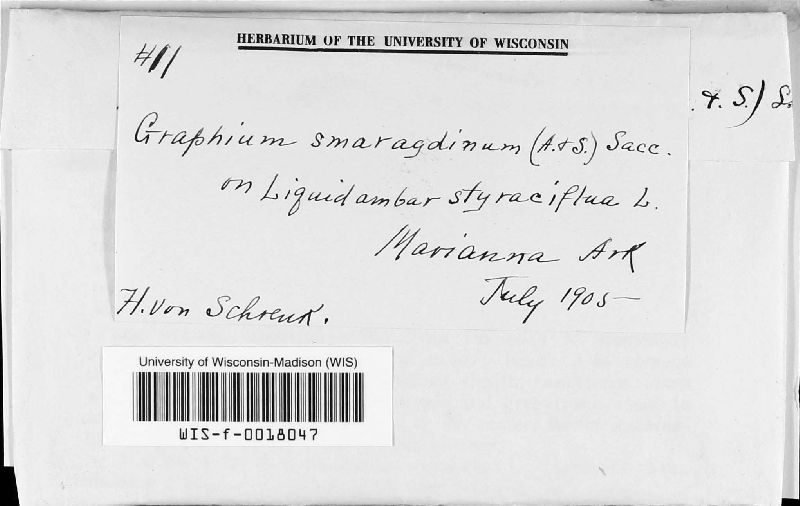 HERBARIUM OF THE UNIVERSITY OF WISCONSIN
#11
& S.) S
Graphium smaragdinum (A.&S.) Sacc.
on Liquidambar styraciflua L.
Marianna Ark
July 1905
H. von Schrenk.
University of Wisconsin-Madison (WIS)
WIS-f-0018047